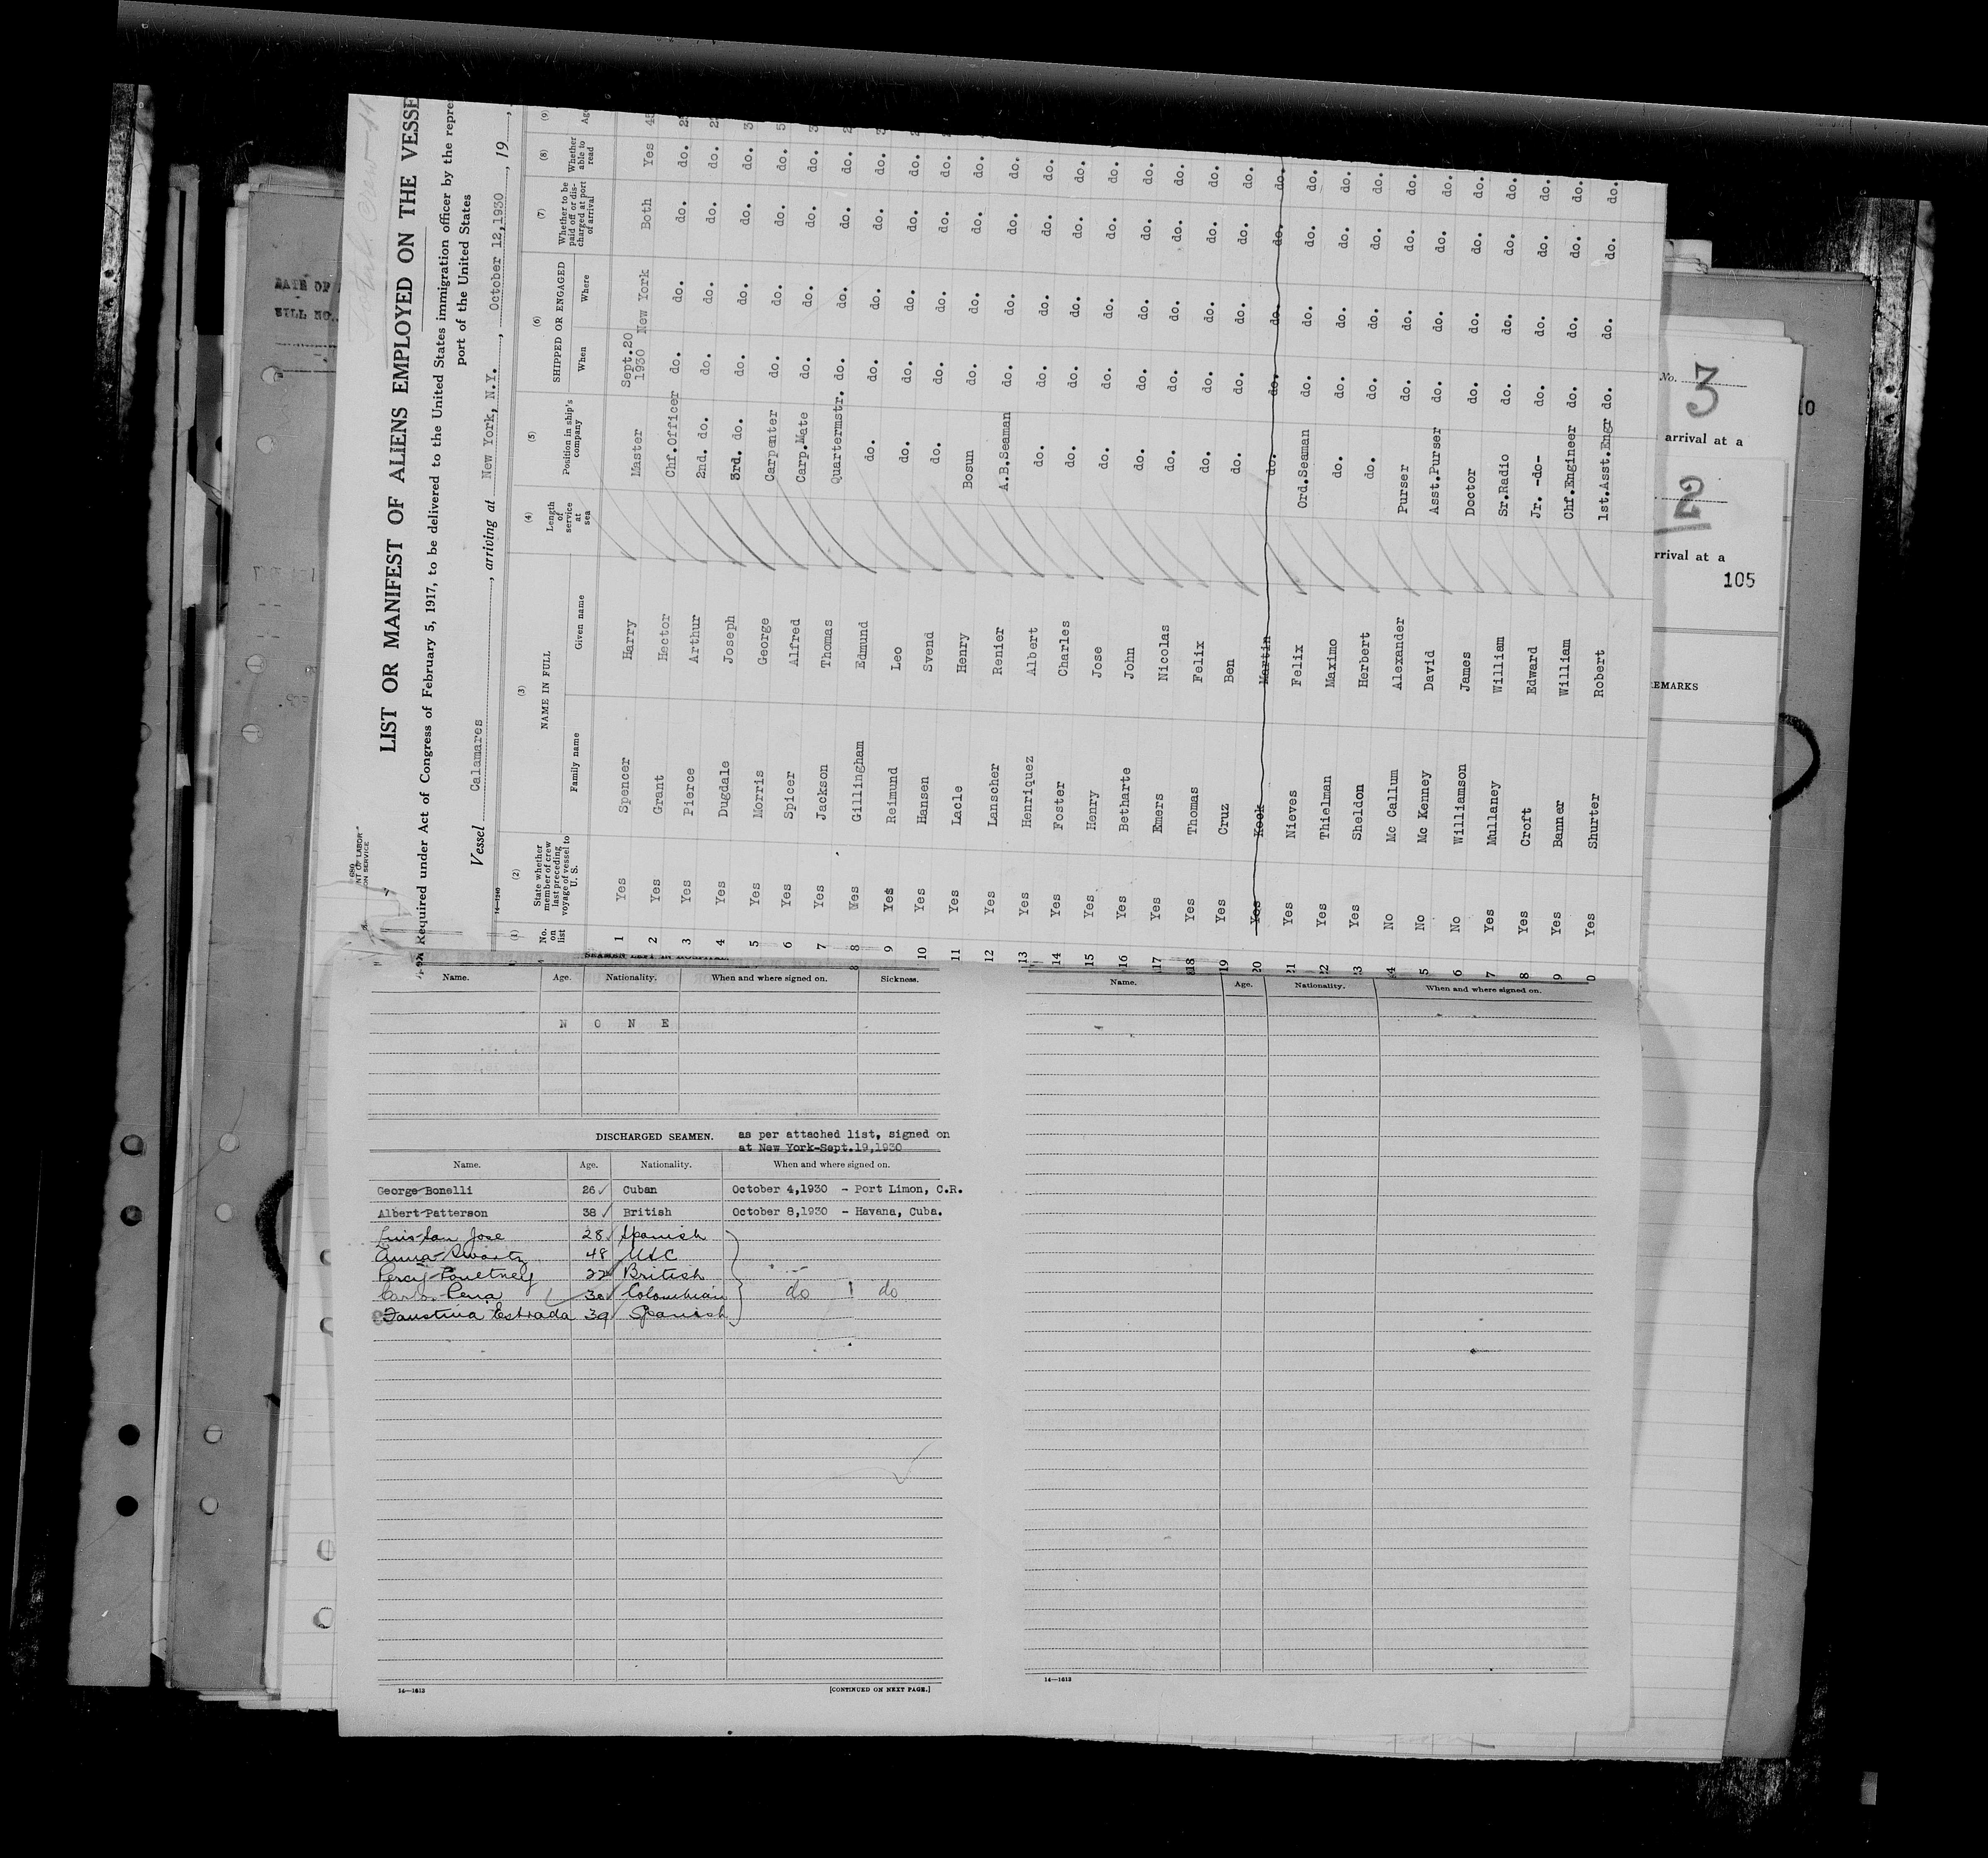 LIST OR MANIFEST OF ALIENS EMPLOYED ON THE VESSE
Required under Act of Congress of February 5, 1917, to be delivered to the United States immigration officer by the repre
port of the United States
Vessel Calamares, arriving at New York, N.Y., October 12,1930, 19
14-1240
(1) (2) (3) (4) (5) (6) (7) (8) (9)
No. on list State whether member of crew last preceding voyage of vessel to U. S. NAME IN FULL Family name Given name Length of service at sea Position in ship's company SHIPPED OR ENGAGED When Where Whether to be paid off or discharged at port of arrival Whether able to read Ag
1 Yes Spencer Harry Master Sept.20 1930 New York Both Yes 45
2 Yes Grant Hector Chf.Officer do. do. do. do.
3 Yes Pierce Arthur 2nd. do. do. do. do. do.
4 Yes Dugdale Joseph 3rd. do. do. do. do. do.
5 Yes Morris George Carpenter do. do. do. do.
6 Yes Spicer Alfred Carp.Mate do. do. do. do.
7 Yes Jackson Thomas Quartermstr. do. do. do. do.
8 Yes Gillingham Edmund do. do. do. do. do.
9 Yes Reimund Leo do. do. do. do. do.
10 Yes Hansen Svend do. do. do. do. do.
11 Yes Lacle Henry Bosun do. do. do. do.
12 Yes Lanscher Renier A.B.Seaman do. do. do. do.
13 Yes Henriquez Albert do. do. do. do. do.
14 Yes Foster Charles do. do. do. do. do.
15 Yes Henry Jose do. do. do. do. do.
16 Yes Betharte John do. do. do. do. do.
17 Yes Emers Nicolas do. do. do. do. do.
18 Yes Thomas Felix do. do. do. do. do.
19 Yes Cruz Ben do. do. do. do. do.
20 Yes Kock Martin do. do. do. do. do.
21 Yes Nieves Felix Ord.Seaman do. do. do. do.
22 Yes Thielman Maximo do. do. do. do. do.
3 Yes Sheldon Herbert do. do. do. do. do.
4 No Mc Callum Alexander Purser do. do. do. do.
5 No Mc Kenney David Asst.Purser do. do. do. do.
6 No Williamson James Doctor do. do. do. do.
7 Yes Mullaney William Sr.Radio do. do. do. do.
8 Yes Croft Edward Jr. -do- do. do. do. do.
9 Yes Banner William Chf.Engineer do. do. do. do.
0 Yes Shurter Robert 1st.Asst.Engr do. do. do. do.
SEAMEN LEFT IN HOSPITAL.
Name. Age. Nationality. When and where signed on. Sickness.
N O N E
DISCHARGED SEAMEN. as per attached list, signed on
at New York-Sept.19,1930
Name. Age. Nationality. When and where signed on.
George Bonelli 26 Cuban October 4,1930 - Port Limon, C.R.
Albert Patterson 38 British October 8,1930 - Havana, Cuba.
Luis San Jose 28 Spanish
Anna Swartz 48 USC
Percy Poultney 22 British
Carlos Pena 30 Colombian do do
Faustina Estrada 39 Spanish
14-1613
[CONTINUED ON NEXT PAGE.]
Name. Age. Nationality. When and where signed on.
14-1613
DATE OF
BILL NO.
No. 3
10
arrival at a
2
rrival at a
105
EMARKS